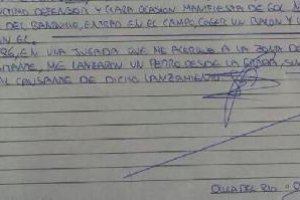 ÚLTIMO DEFENSOR Y CLARA OCASIÓN MANIFIESTA DE GOL
DEL BANQUILLO, ENTRÓ EN EL CAMPO, COGER UN BALÓN Y
EN EL.
86, EN UNA JUGADA QUE ME ACERQUE A LA ZONA DE
ME LANZARON UN PETRO DESDE LA GRADA, SIN
AL CAUSANTE DE DICHO LANZAMIENTO.
DEL RIO